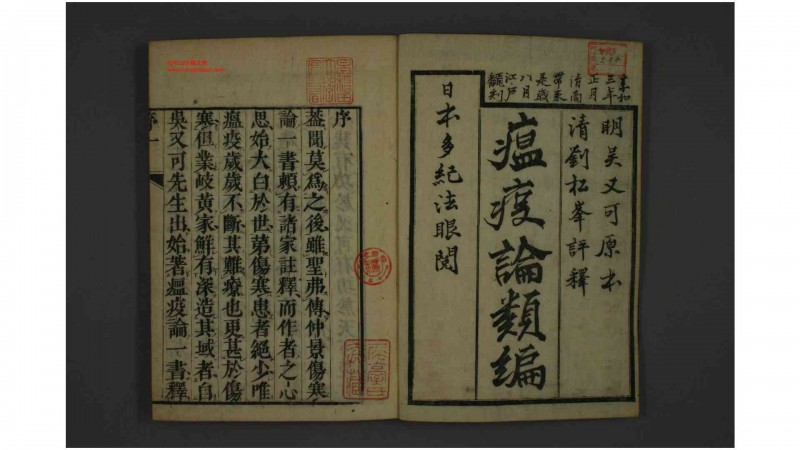 享和
三年
正月
清商
帶來
是歲
八月
江戶
翻刻
明吳又可原本
清劉松峯評釋
瘟疫論類編
日本多紀法眼閱
序
蓋聞莫爲之後雖聖弗傳仲景傷寒
論一書賴有諸家註釋而作者之心
思始大白於世第傷寒患者絕少唯
瘟疫歲歲不斷其難療也更甚於傷
寒但業岐黃家鮮有深造其域者自
吳又可先生出始著瘟疫論一書釋
序一